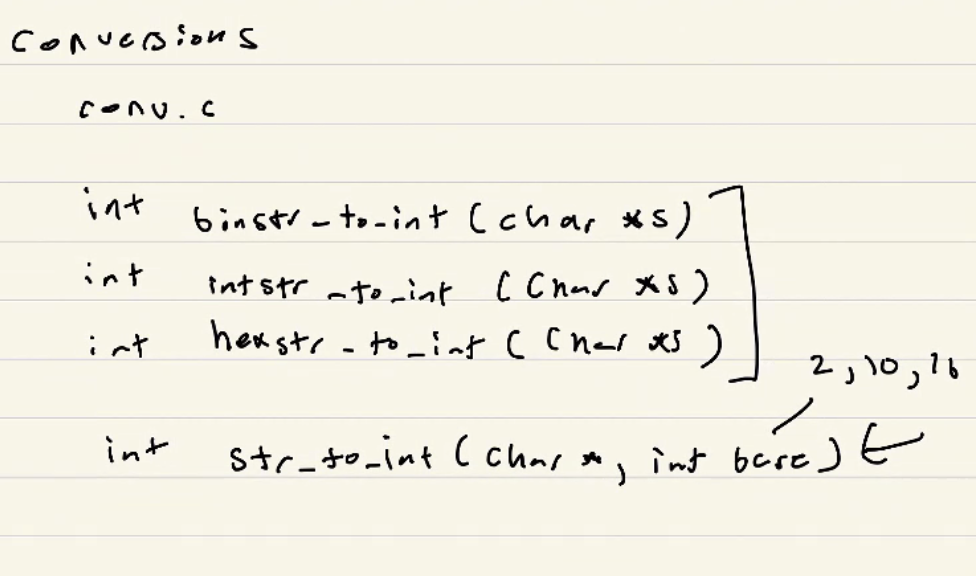 Conversions
conv.c
int binstr_to_int (char *s)
int intstr_to_int (Char *s)
int hexstr_to_int ( Char *s )
2, 10, 16
int str_to_int ( Char *, int base)